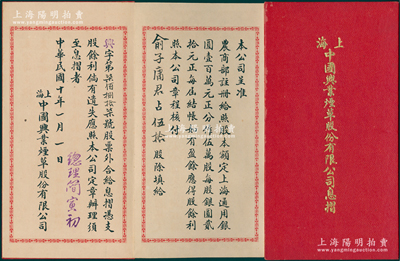 上海
中國興業煙草股份有限公司息摺
本公司呈准
農商部註册給照資本額定上海通用銀
圓壹百萬元正分作伍萬股每股銀圓貳
拾元正每屆結帳如有盈餘應得股餘利
照本公司章程核付
俞子漘君占伍拾股除填給
興字第柒佰捌拾柒號股票外合給息摺憑支
股餘利倘有遺失應照本公司定章辦理須
至息摺者
總理簡寅初
中華民國十年一月一日
上海中國興業煙草股份有限公司
上海陽明拍卖
www.yangmingauction.com